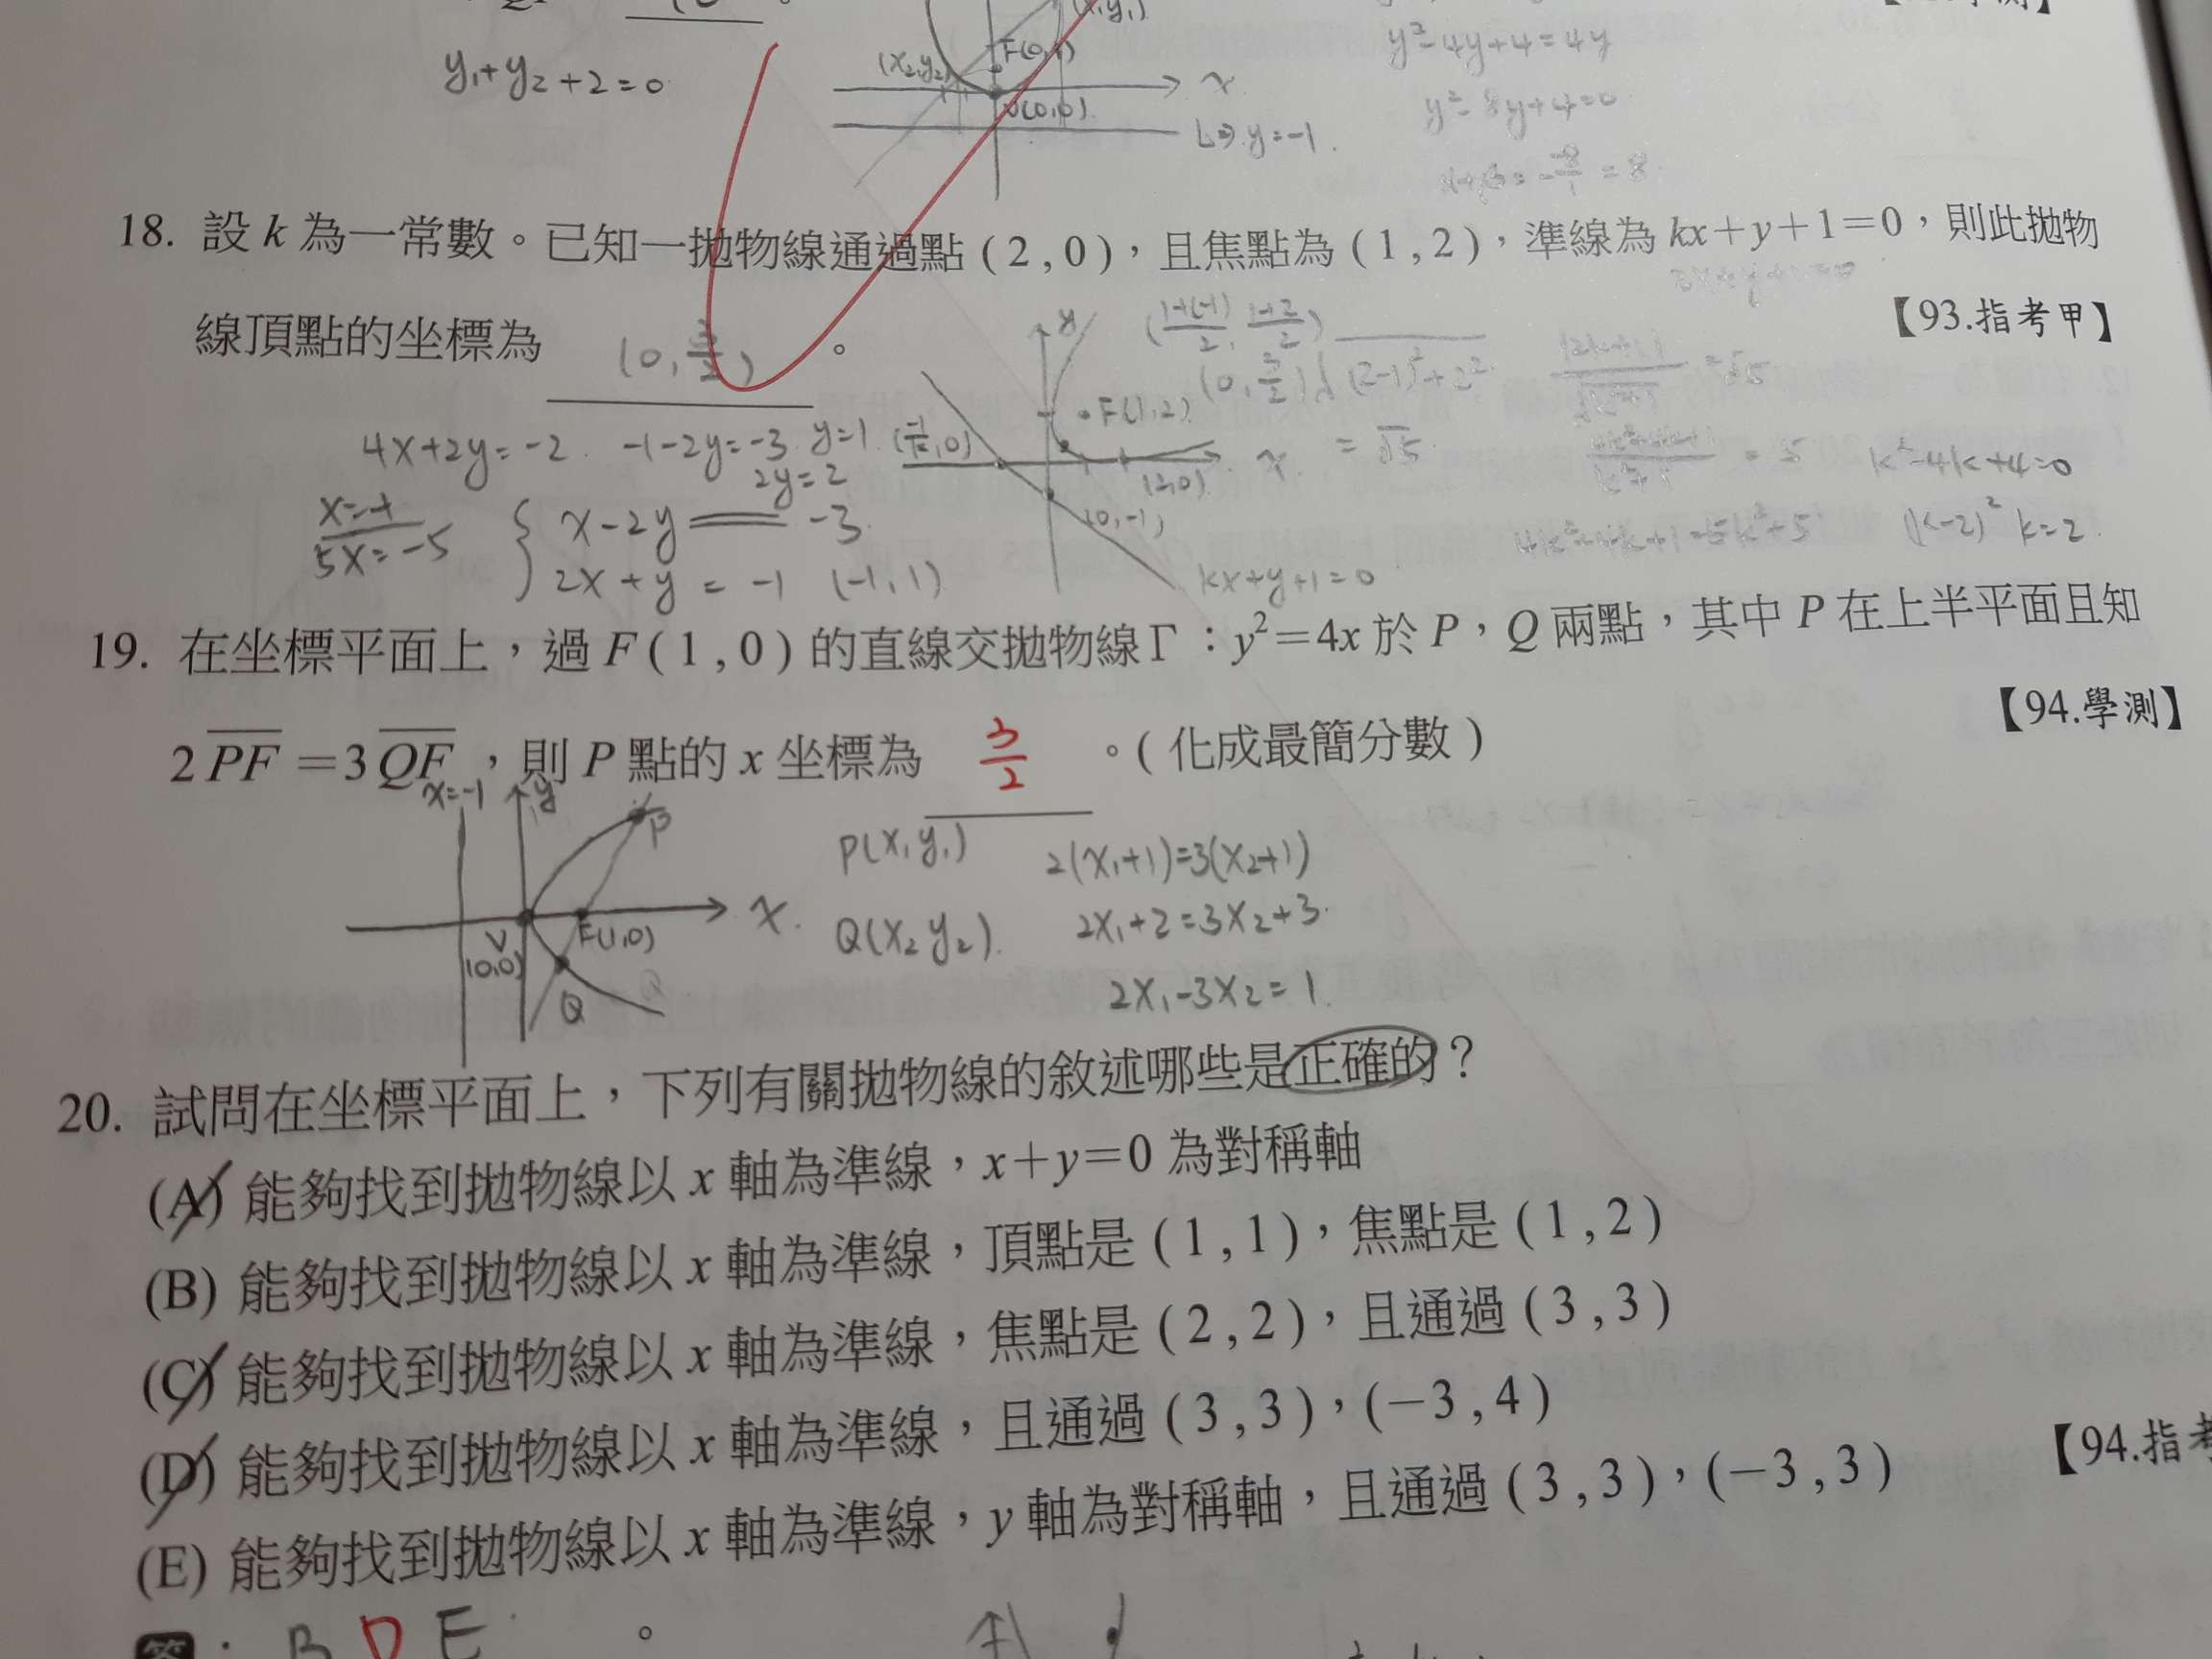 y₁+y₂+2=0
(x₁,y₁)
(x₂,y₂)
F(0,1)
x
V(0,0)
L⇒y=-1.
y²-4y+4=4y
y²-8y+4=0
18. 設 k 為一常數。已知一拋物線通過點 ( 2 , 0 )，且焦點為 ( 1 , 2 )，準線為 kx＋y＋1＝0，則此拋物
線頂點的坐標為 (0, 3/2) 。 【93.指考甲】
4x+2y=-2 -1-2y=-3 y=1
2y=2
x=-1
5x=-5
{ x-2y = -3
2x+y = -1 (-1,1)
y
(1+(-1)/2, 1+2/2)
(0, 3/2)
√(2-1)²+2²
=√5
F(1,2)
x
(2,0)
(0,-1)
kx+y+1=0
k²-4k+4=0
4k²-4k+1=5k²+5
(k-2)² k=2
19. 在坐標平面上，過 F ( 1 , 0 ) 的直線交拋物線Γ：y²＝4x 於 P，Q 兩點，其中 P 在上半平面且知
2 PF ＝3 QF，則 P 點的 x 坐標為 3/2 。( 化成最簡分數 ) 【94.學測】
x=-1
y
P
x.
V
(0,0)
F(1,0)
Q
P(x₁ y₁) 2(x₁+1)=3(x₂+1)
Q(x₂ y₂). 2x₁+2=3x₂+3.
2x₁-3x₂=1.
20. 試問在坐標平面上，下列有關拋物線的敘述哪些是正確的？
(A) 能夠找到拋物線以 x 軸為準線，x＋y＝0 為對稱軸
(B) 能夠找到拋物線以 x 軸為準線，頂點是 ( 1 , 1 )，焦點是 ( 1 , 2 )
(C) 能夠找到拋物線以 x 軸為準線，焦點是 ( 2 , 2 )，且通過 ( 3 , 3 )
(D) 能夠找到拋物線以 x 軸為準線，且通過 ( 3 , 3 )，(－3 , 4 )
(E) 能夠找到拋物線以 x 軸為準線，y 軸為對稱軸，且通過 ( 3 , 3 )，(－3 , 3 ) 【94.指考
答：B D E 。